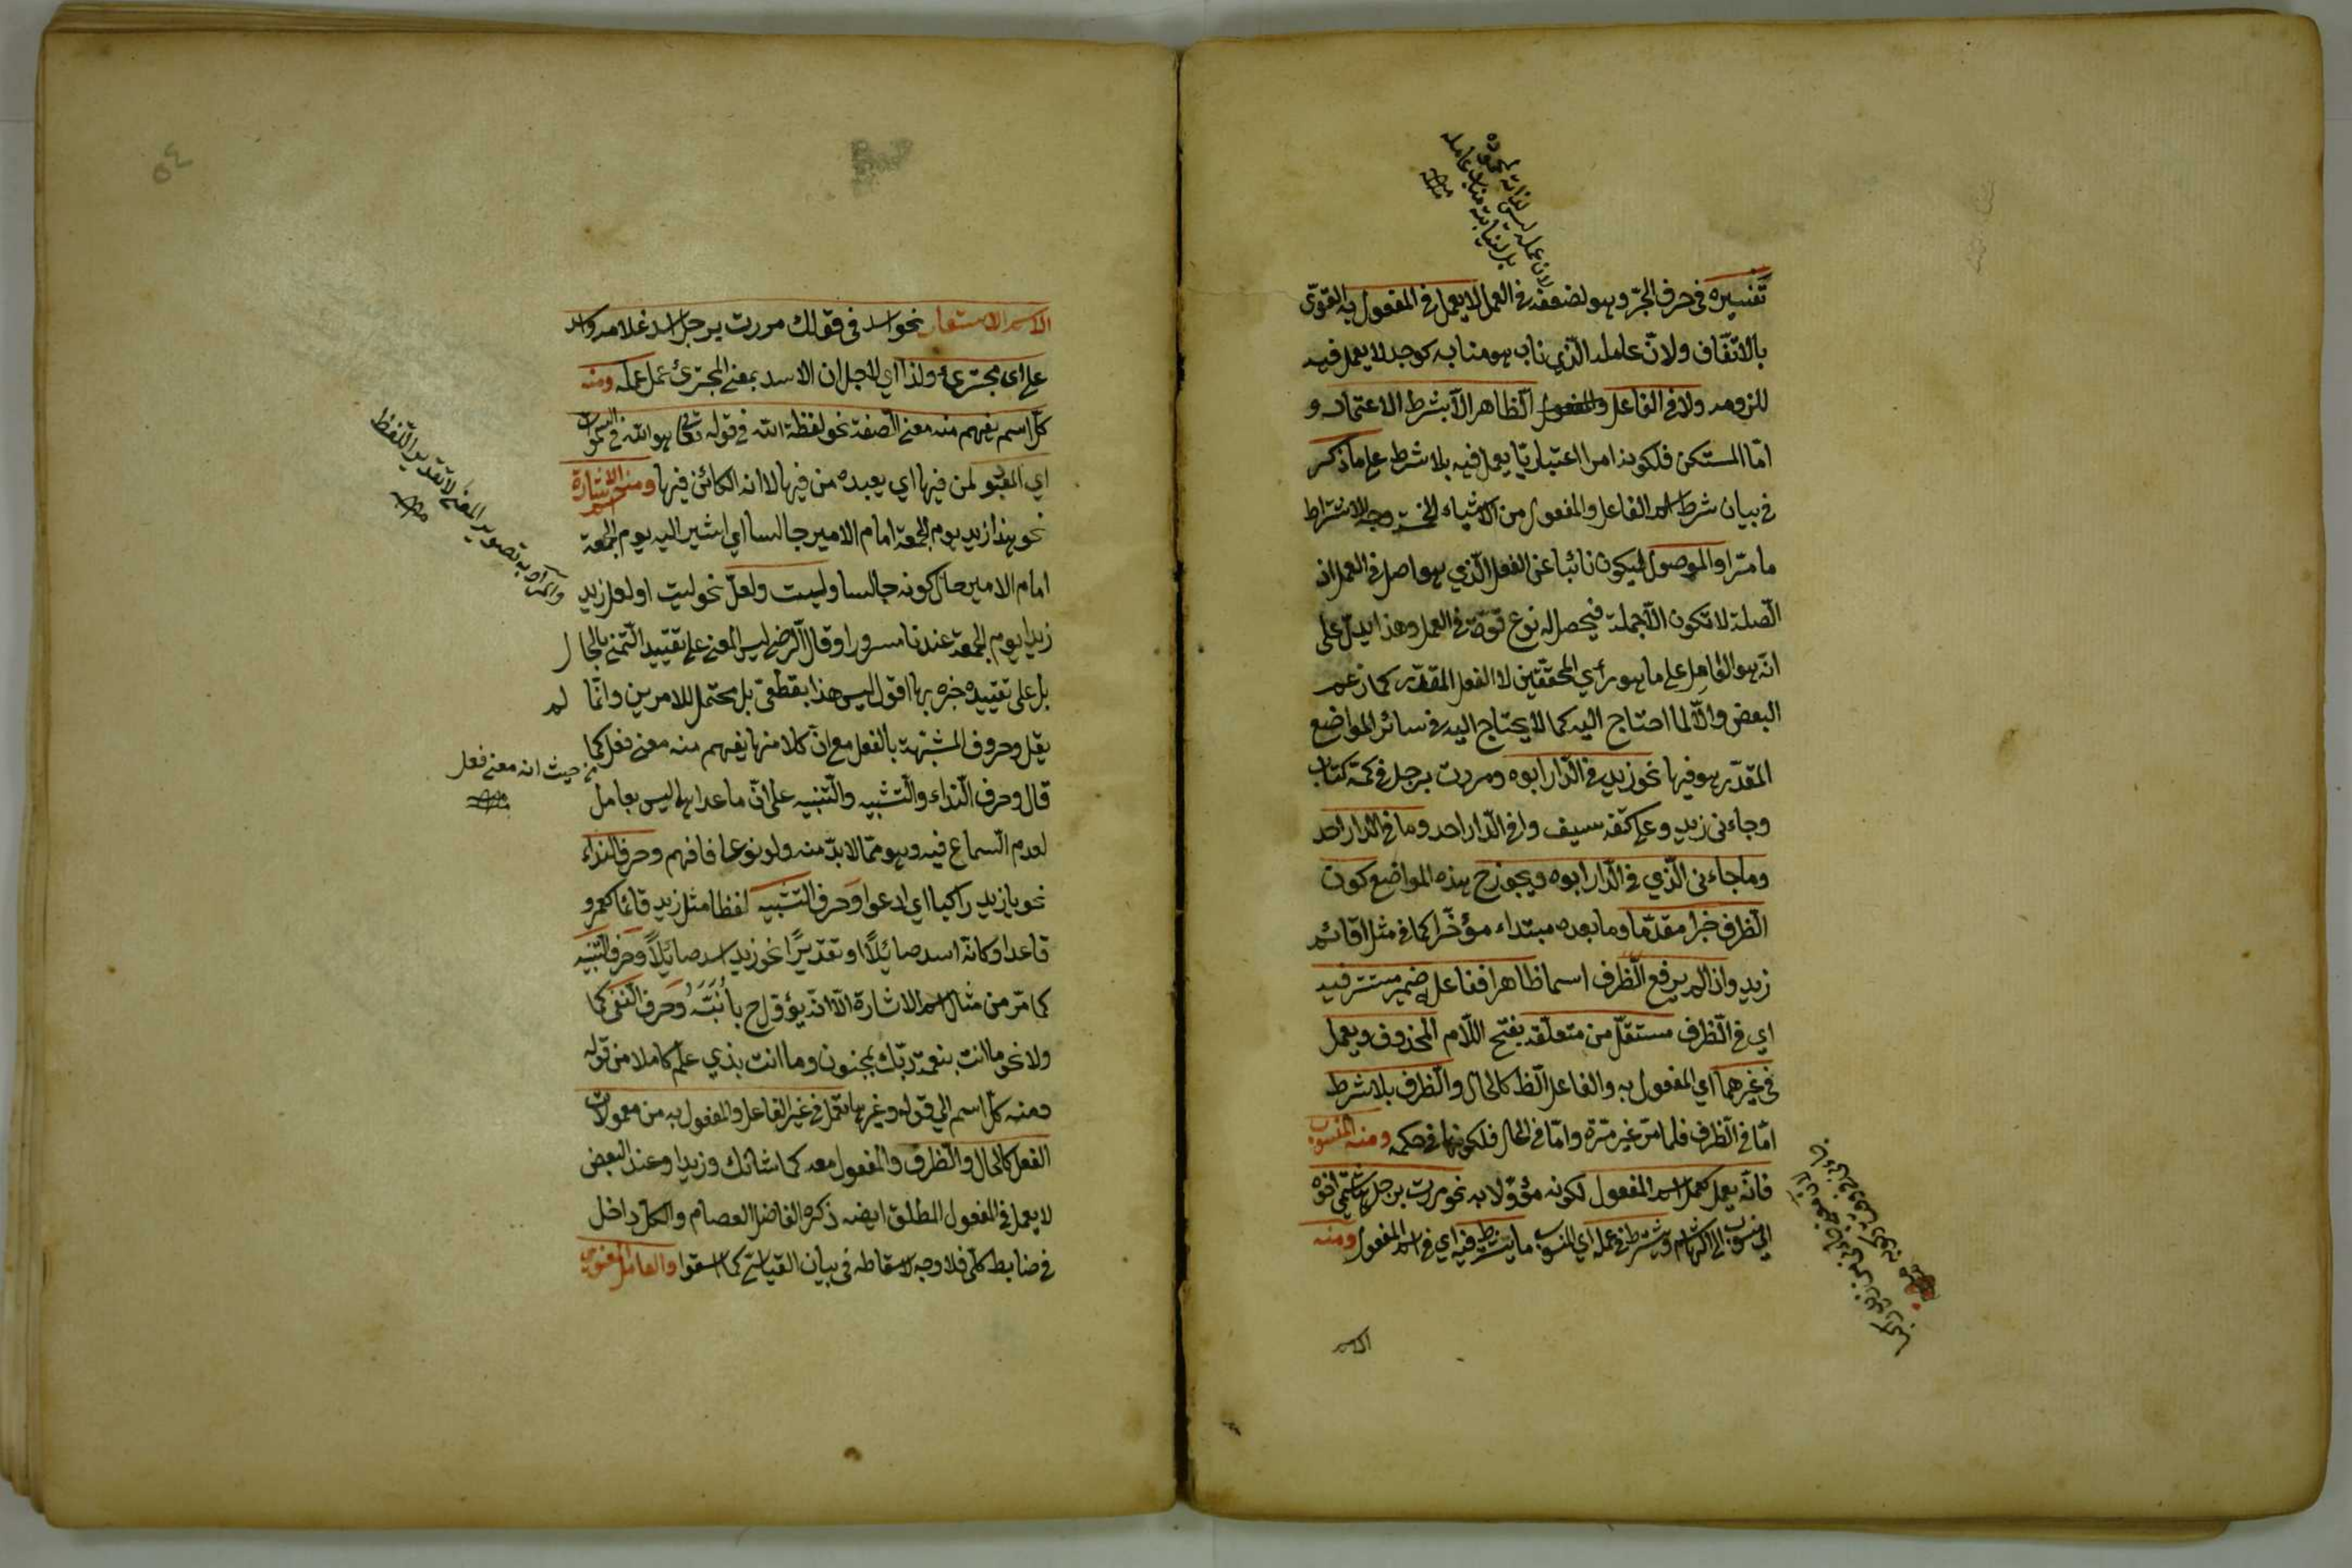 تفسيره في حرف الجرّ وهو لضعفه في العمل لا يعمل في المفعول به القوّي
بالاتّفاق ولانّ عامله الّذي ناب هو منابه كوجد لا يعمل فيه
للزومه ولا في الفاعل الظاهر الّا بشرط الاعتماد و
امّا المستكن فلكونه امرا اعتباريّا يعمل فيه بلا شرط على ما ذكر
في بيان شرط اسم الفاعل والمفعول من الاشياء الخمسة وجه الاشتراط
ما مرّ او الموصول ليكون نائبا عن الفعل الّذي هو اصل في العمل اذ
الصّلة لا تكون الّا جملة فيحصل له نوع قوّة في العمل وهذا يدلّ على
انّه هو العامل على ما هو رأي المحققين لا الفعل المقدّر كما زعم
البعض والّا لما احتاج اليه كما لا يحتاج اليه في سائر المواضع
المقدّر هو فيها نحو زيد في الدّار ابوه ومررت برجل في كمّه كتاب
وجاءني زيد وعلى كتفه سيف وا في الدّار احد وما في الدار احد
وما جاءني الّذي في الدّار ابوه ويجوز ح هذه المواضع كون
الظرف خبرا مقدّما وما بعده مبتداء مؤخّرا كما في مثل اقائم
زيد واذا لم يرفع الظّرف اسما ظاهرا ففاعله ضمير مستتر فيه
اي في الظّرف مستقلّ من متعلّقه بفتح اللّام المحذوف ويعمل
في غيرهما اي المفعول به والفاعل الظ كالحال والظّرف بلا شرط
امّا في الظّرف فلما مرّ غير مرّة وامّا في الحال فلكونها في حكمه ومنه المنسوب
فانّه يعمل كعمل اسم المفعول لكونه مؤوّلا به نحو مررت برجل هاشمّي اخوه
اي منسوب الى الهاشم ويشترط في عمله اي المنسوب ما يشترط فيه اي في اسم المفعول ومنه
الاسم
لان عمله ليس لذاته
بل لنيابته مناب عامله
منه
٥٤
الاسم الاستعار نحو اسد في قولك مررت برجل اسد غلامه واسد
علي اي مجترئ ولذا اي لاجل ان الاسد بمعنى المجترئ عمل عمله ومنه
كلّ اسم يفهم منه معنى الصّفة نحو لفظة الله في قوله تعالى هو الله في السموات
اي المعبود لمن فيها اي يعبده من فيها لا انه الكائن فيها ومنه اسم الاشارة
نحو هذا زيد يوم الجمعة امام الامير جالسا اي اشير اليه يوم الجمعة
امام الامير حال كونه جالسا وليت ولعلّ نحو ليت او لعل زيد
زيدا يوم الجمعة عندنا مسرورا وقال الرّضي ليس المعنى على تقييد التّمني بالحال
بل على تقييد خبره بها اقول ليس هذا بقطعيّ بل محتمل للامرين وانّما لم
يقل وحروف المشبّهة بالفعل مع انّ كلا منها يفهم منه معنى فعل كما
قال وحرف النّداء والتّشبيه والتّنبيه على انّ ما عداها ليس بعامل
لعدم السّماع فيه وهو ممّا لا بدّ منه ولو نوعا فافهم وحرف النداء
نحو يا زيد راكبا اي ادعوا وحرف التّشبيه لفظا مثل زيد قائما كعمرو
قاعدا وكانّه اسد صائلًا او تقديرًا نحو زيد اسد صائلًا وحرف التّنبيه
كما مرّ من مثال اسم الاشارة الّا انّه يؤوّل ح بأُنَبِّهُ وحرف النّفي كما
ولا نحو ما انت بنعمة ربّك بمجنون وما انت بذي علم كاملا من قوله
ومنه كلّ اسم الي قوله وغيرها تعمل في غير الفاعل والمفعول به من معمولات
الفعل كالحال والظّرف والمفعول معه كما شانك وزيدا وعند البعض
لا يعمل في المفعول المطلق ايضه ذكره الفاضل العصام والكلّ داخل
في ضابط كلّي فلا وجه لاسقاطه في بيان القياسي كما اسقوا والعامل المعنوي
والمراد به تصوير المعنى لا تقدير اللّفظ
منه
من حيث انه معنى فعل
منه